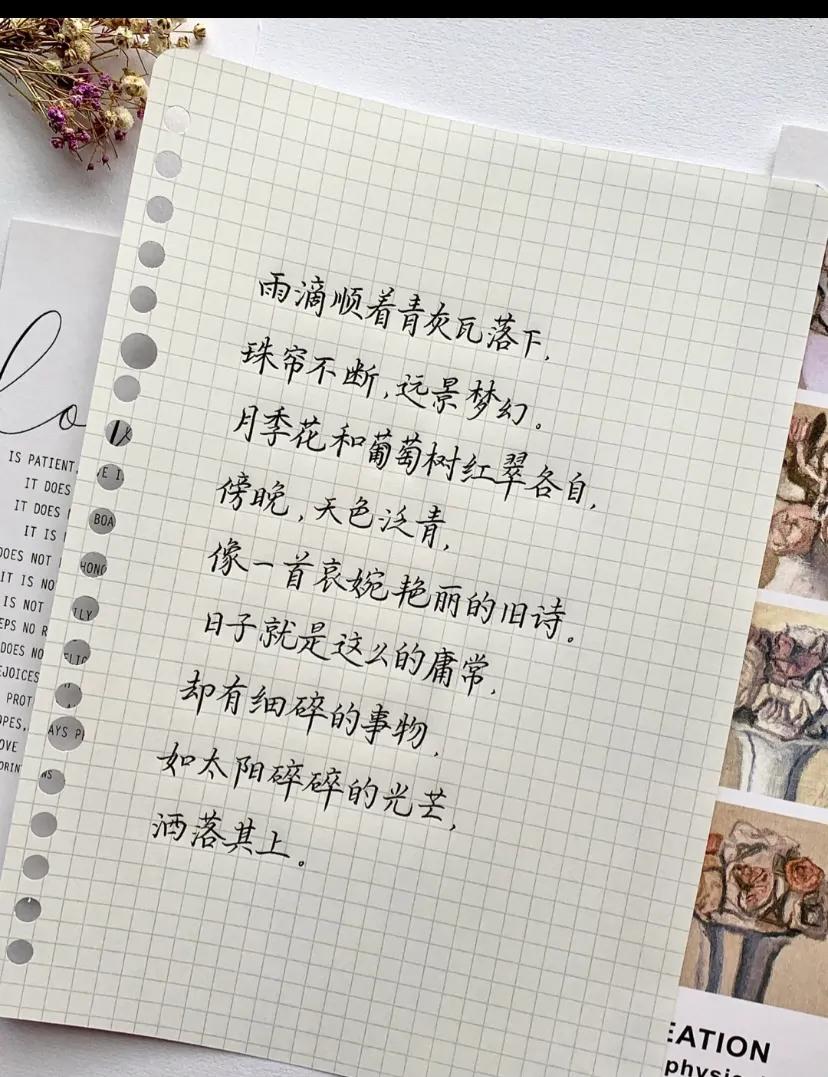 雨滴顺着青灰瓦落下,
珠帘不断,远景梦幻。
月季花和葡萄树红翠各自,
傍晚,天色泛青,
像一首哀婉艳丽的旧诗。
日子就是这么的庸常,
却有细碎的事物,
如太阳碎碎的光芒,
洒落其上。
lo
IS PATIENT,
IT DOES
IT DOES
IT IS
DOES NOT
IT IS NO
IS NOT
EPS NO R
DOES NO
EJOICES
PROT
OPES,
OVE
ORIN
VE I
BOA
HONO
LLY
ELIG
AYS P
WS
EATION
physic